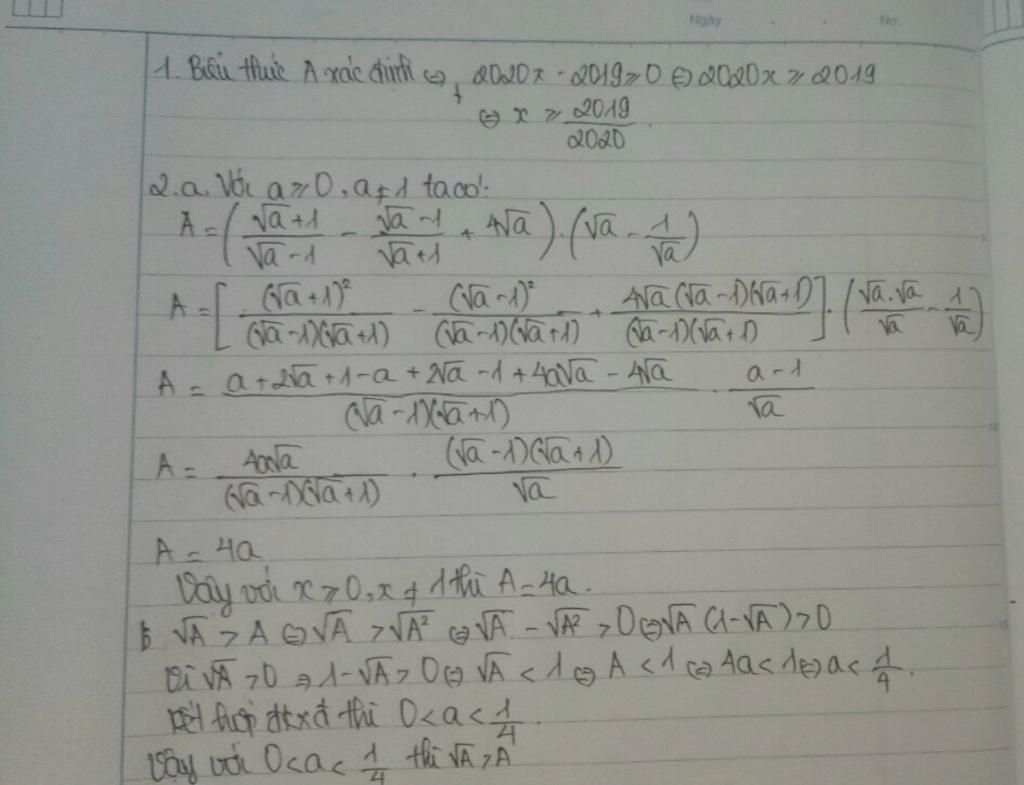 Ngày No.
1. Biểu thức A xác định ⇔ 2020x - 2019 ≥ 0 ⇔ 2020x ≥ 2019
⇔ x ≥ 2019/2020.
2.a. Với a ≥ 0, a ≠ 1 ta có:
A = ( (√a + 1)/(√a - 1) - (√a - 1)/(√a + 1) + 4√a ) . (√a - 1/√a)
A = [ (√a + 1)²/((√a - 1)(√a + 1)) - (√a - 1)²/((√a - 1)(√a + 1)) + 4√a(√a - 1)(√a + 1)/((√a - 1)(√a + 1)) ] . (√a.√a/√a - 1/√a)
A = (a + 2√a + 1 - a + 2√a - 1 + 4a√a - 4√a)/((√a - 1)(√a + 1)) . (a - 1)/√a
A = 4a√a/((√a - 1)(√a + 1)) . (√a - 1)(√a + 1)/√a
A = 4a
Vậy với x ≥ 0, x ≠ 1 thì A = 4a.
b √A > A ⇔ √A > √A² ⇔ √A - √A² > 0 ⇔ √A (1 - √A) > 0
Vì √A > 0 ⇒ 1 - √A > 0 ⇔ √A < 1 ⇔ A < 1 ⇔ 4a < 1 ⇔ a < 1/4.
Kết hợp đkxđ thì 0 < a < 1/4.
Vậy với 0 < a < 1/4 thì √A > A